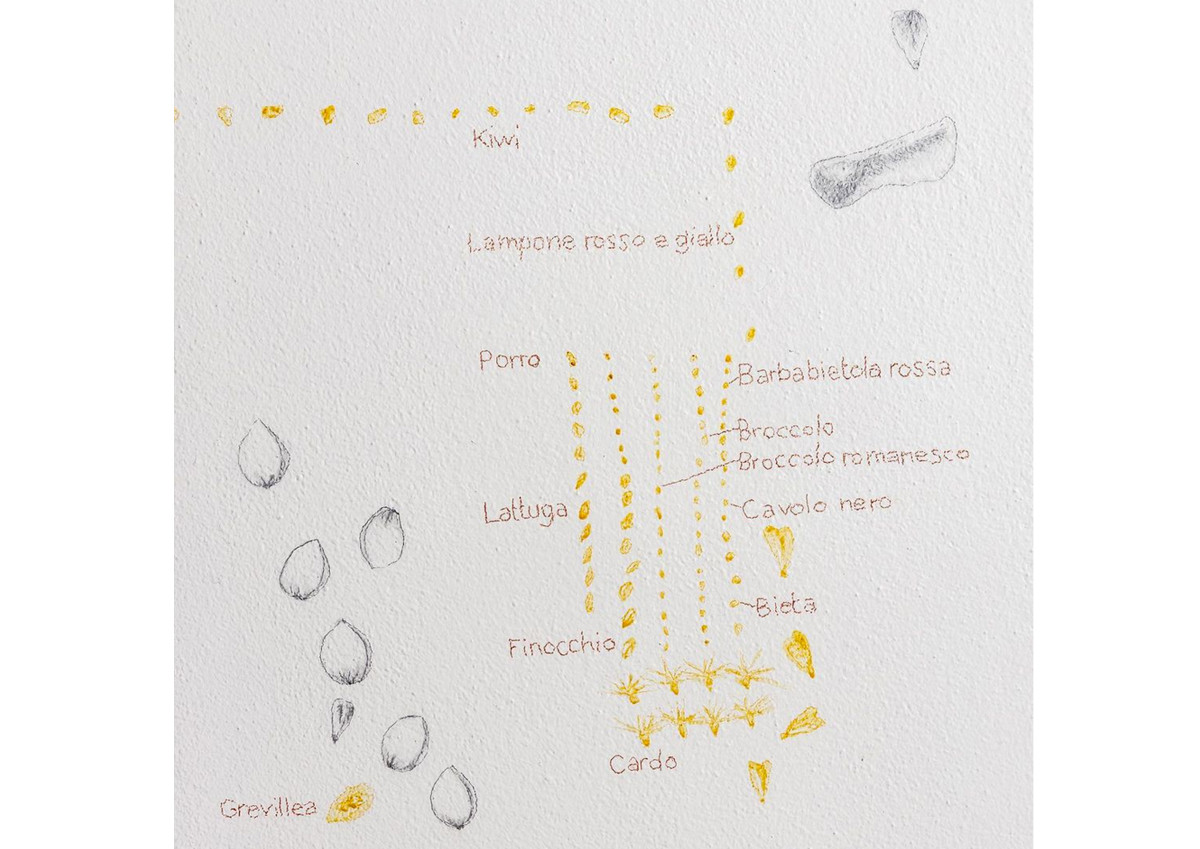 Kiwi
Lampone rosso e giallo
Porro
Barbabietola rossa
Broccolo
Broccolo romanesco
Lattuga
Cavolo nero
Bieta
Finocchio
Cardo
Grevillea